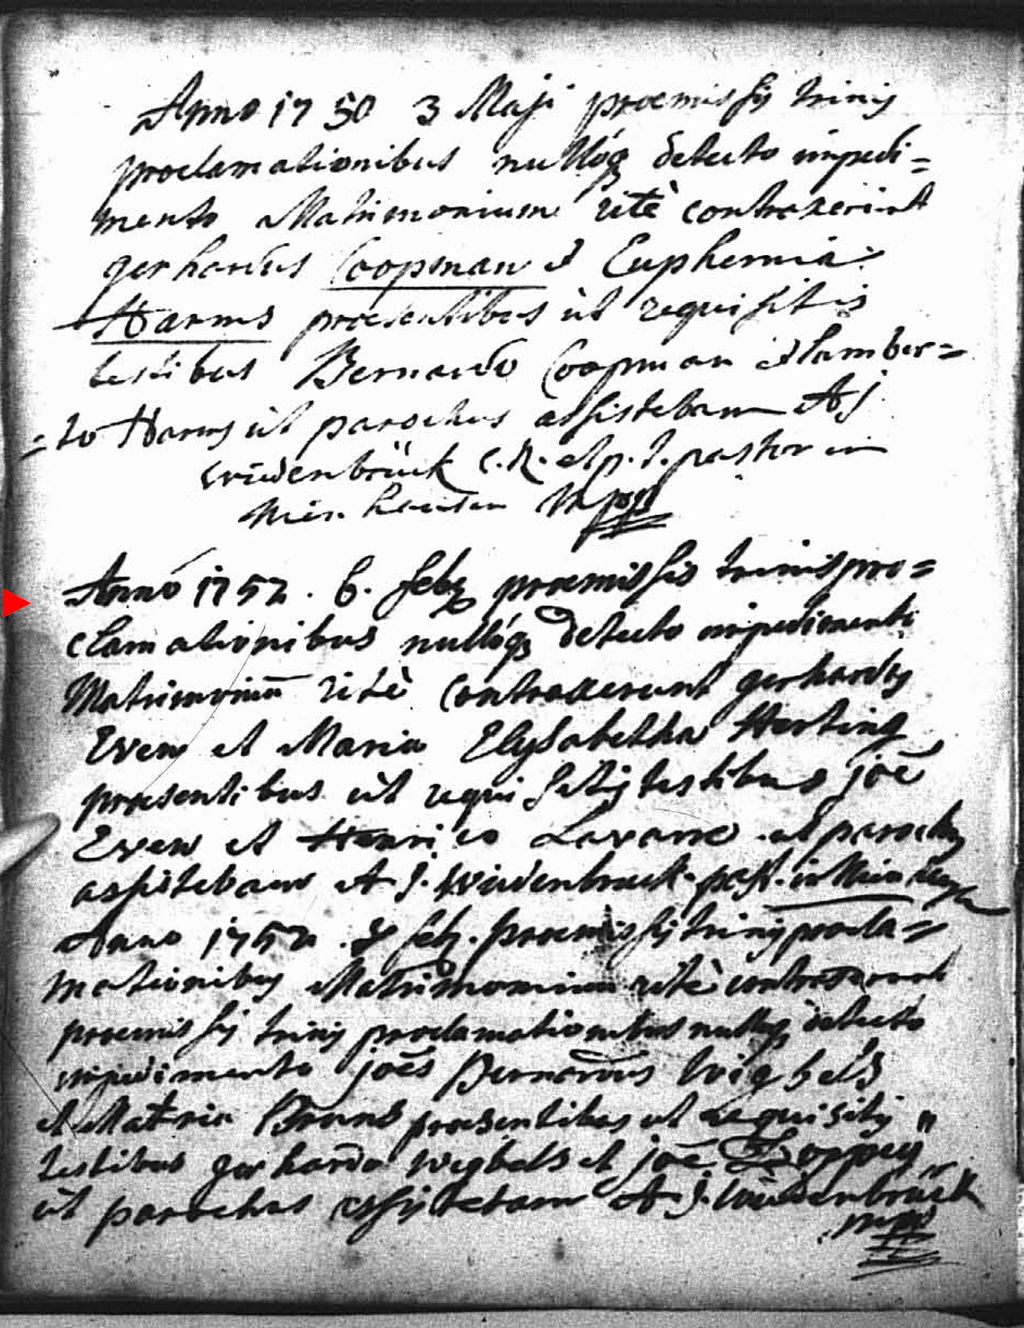 Anno 1750 3 Maji praemissis trinis
proclamationibus nulloq detecto impedi=
mento Matrimonium ritè contraxerunt
gerhardus Coopman et Euphemia
Harms praesentibus ut requisitis
testibus Bernardo Coopman et Lamber=
=to Harms ut parochus assistebam A J
wiedenbrück c. R. et p. t. pastor in
Nien hausen mppr
Anno 1752. 6. feb praemissis trinis pro=
clamationibus nulloq detecto impedimento
Matrimoniū ritè contraxerunt gerhardus
Even et Maria Elysabetha Herting
praesentibus ut requisitis testibus joē
Even et Henrico Lavarre et parochus
assistebam A J. wiedenbruck past. in
Anno 1752. 8 feb. praemissis trinis procla=
mationibus Matrimonium ritè contraxerunt
praemissis trinis proclamationibus nulloq detecto
impedimento joēs Bernardus Wigbels
et Maria Brans praesentibus ut requisitis
testibus gerhardo wegbels et joē
ut parochus assistebam A J. wiedenbrück
mppr